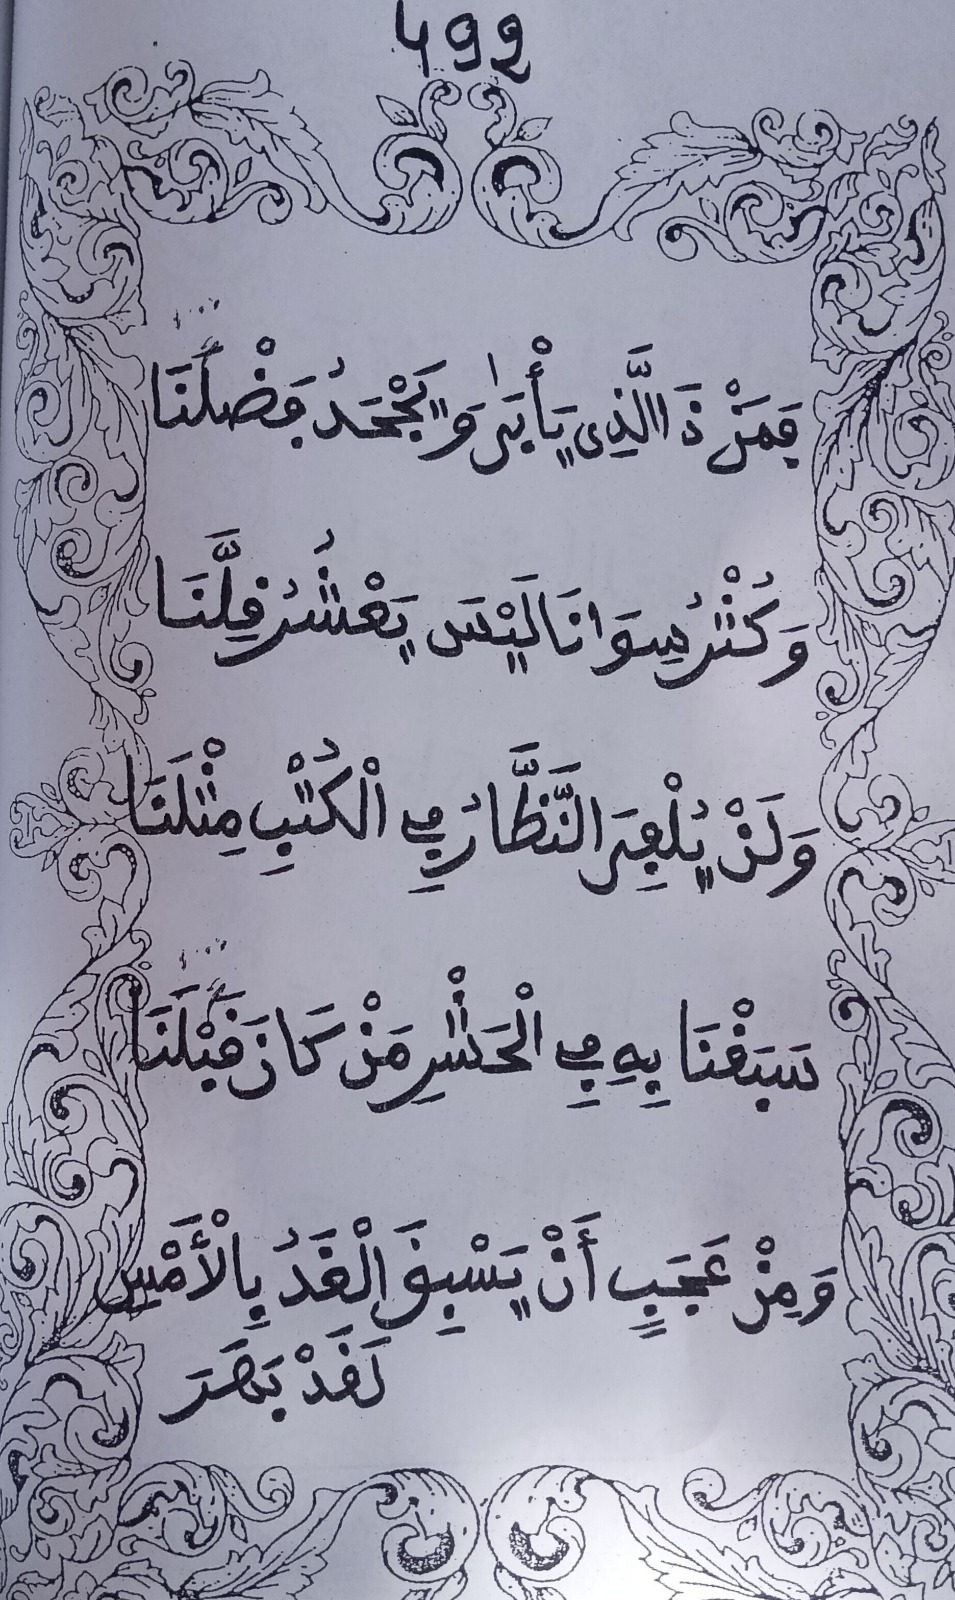 499
فَمَنْ ذَا الَّذِي يَأْبَىٰ وَيَجْحَدُ فَضْلَنَا
وَكُثْرُ سِوَانَا لَيْسَ يَعْشُرُ قِلَّنَا
وَلَنْ يُلْفِيَ النَّظَّارُ فِي الْكُتْبِ مِثْلَنَا
سَبَقْنَا بِهِ فِي الْحَشْرِ مَنْ كَانَ قَبْلَنَا
وَمِنْ عَجَبٍ أَنْ يَسْبِقَ الْغَدُ بِالْأَمْسِ
لَقَدْ بَهَرَ